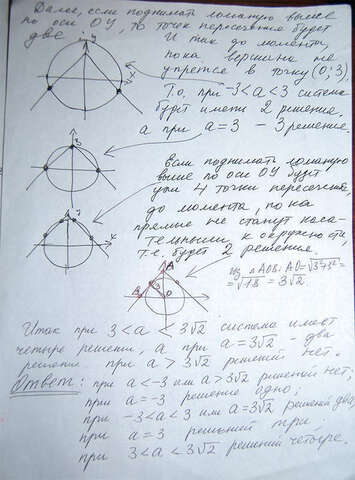 Далее, если поднимать ломаную выше
по оси ОУ, то точек пересечения будет
две.
И так до момента,
пока вершина не
упрется в точку (0; 3).
Т.о. при -3<a<3 система
будет иметь 2 решения,
а при a=3 – 3 решения.
Если поднимать ломаную
выше по оси ОУ будет
уже 4 точки пересечения,
до момента, пока
прямые не станут каса-
тельными к окружности,
т.е. будет 2 решения.
из ΔAOB: AO=√3²+3²=
=√18 = 3√2
Итак при 3<a<3√2 система имеет
четыре решения, а при a=3√2 – два
решения при a>3√2 решений нет.
Ответ: при a<-3 или a>3√2 решений нет;
при a=-3 решение одно;
при -3<a<3 или a=3√2 решений два;
при a=3 решений три;
при 3<a<3√2 решений четыре.